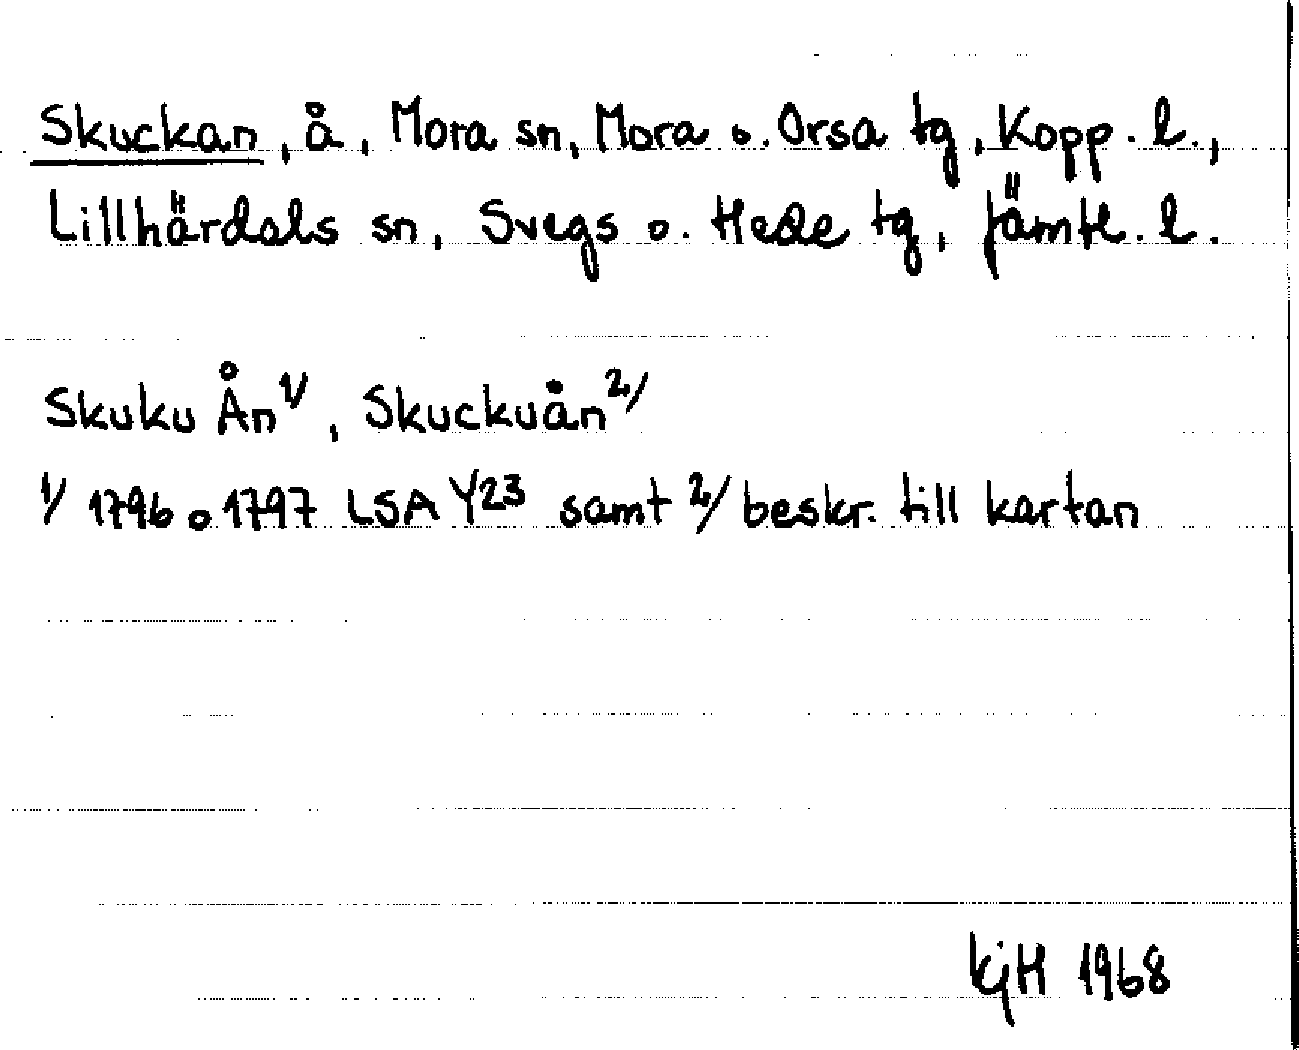 Skuckan, å, Mora sn, Mora o. Orsa tg, Kopp. l.,
Lillhärdals sn, Svegs o. Hede tg, Jämtl. l.
Skuku Ån 1/, Skuckuån 2/
1/ 1796 o 1797 LSA Y23 samt 2/ beskr. till kartan
KjH 1968